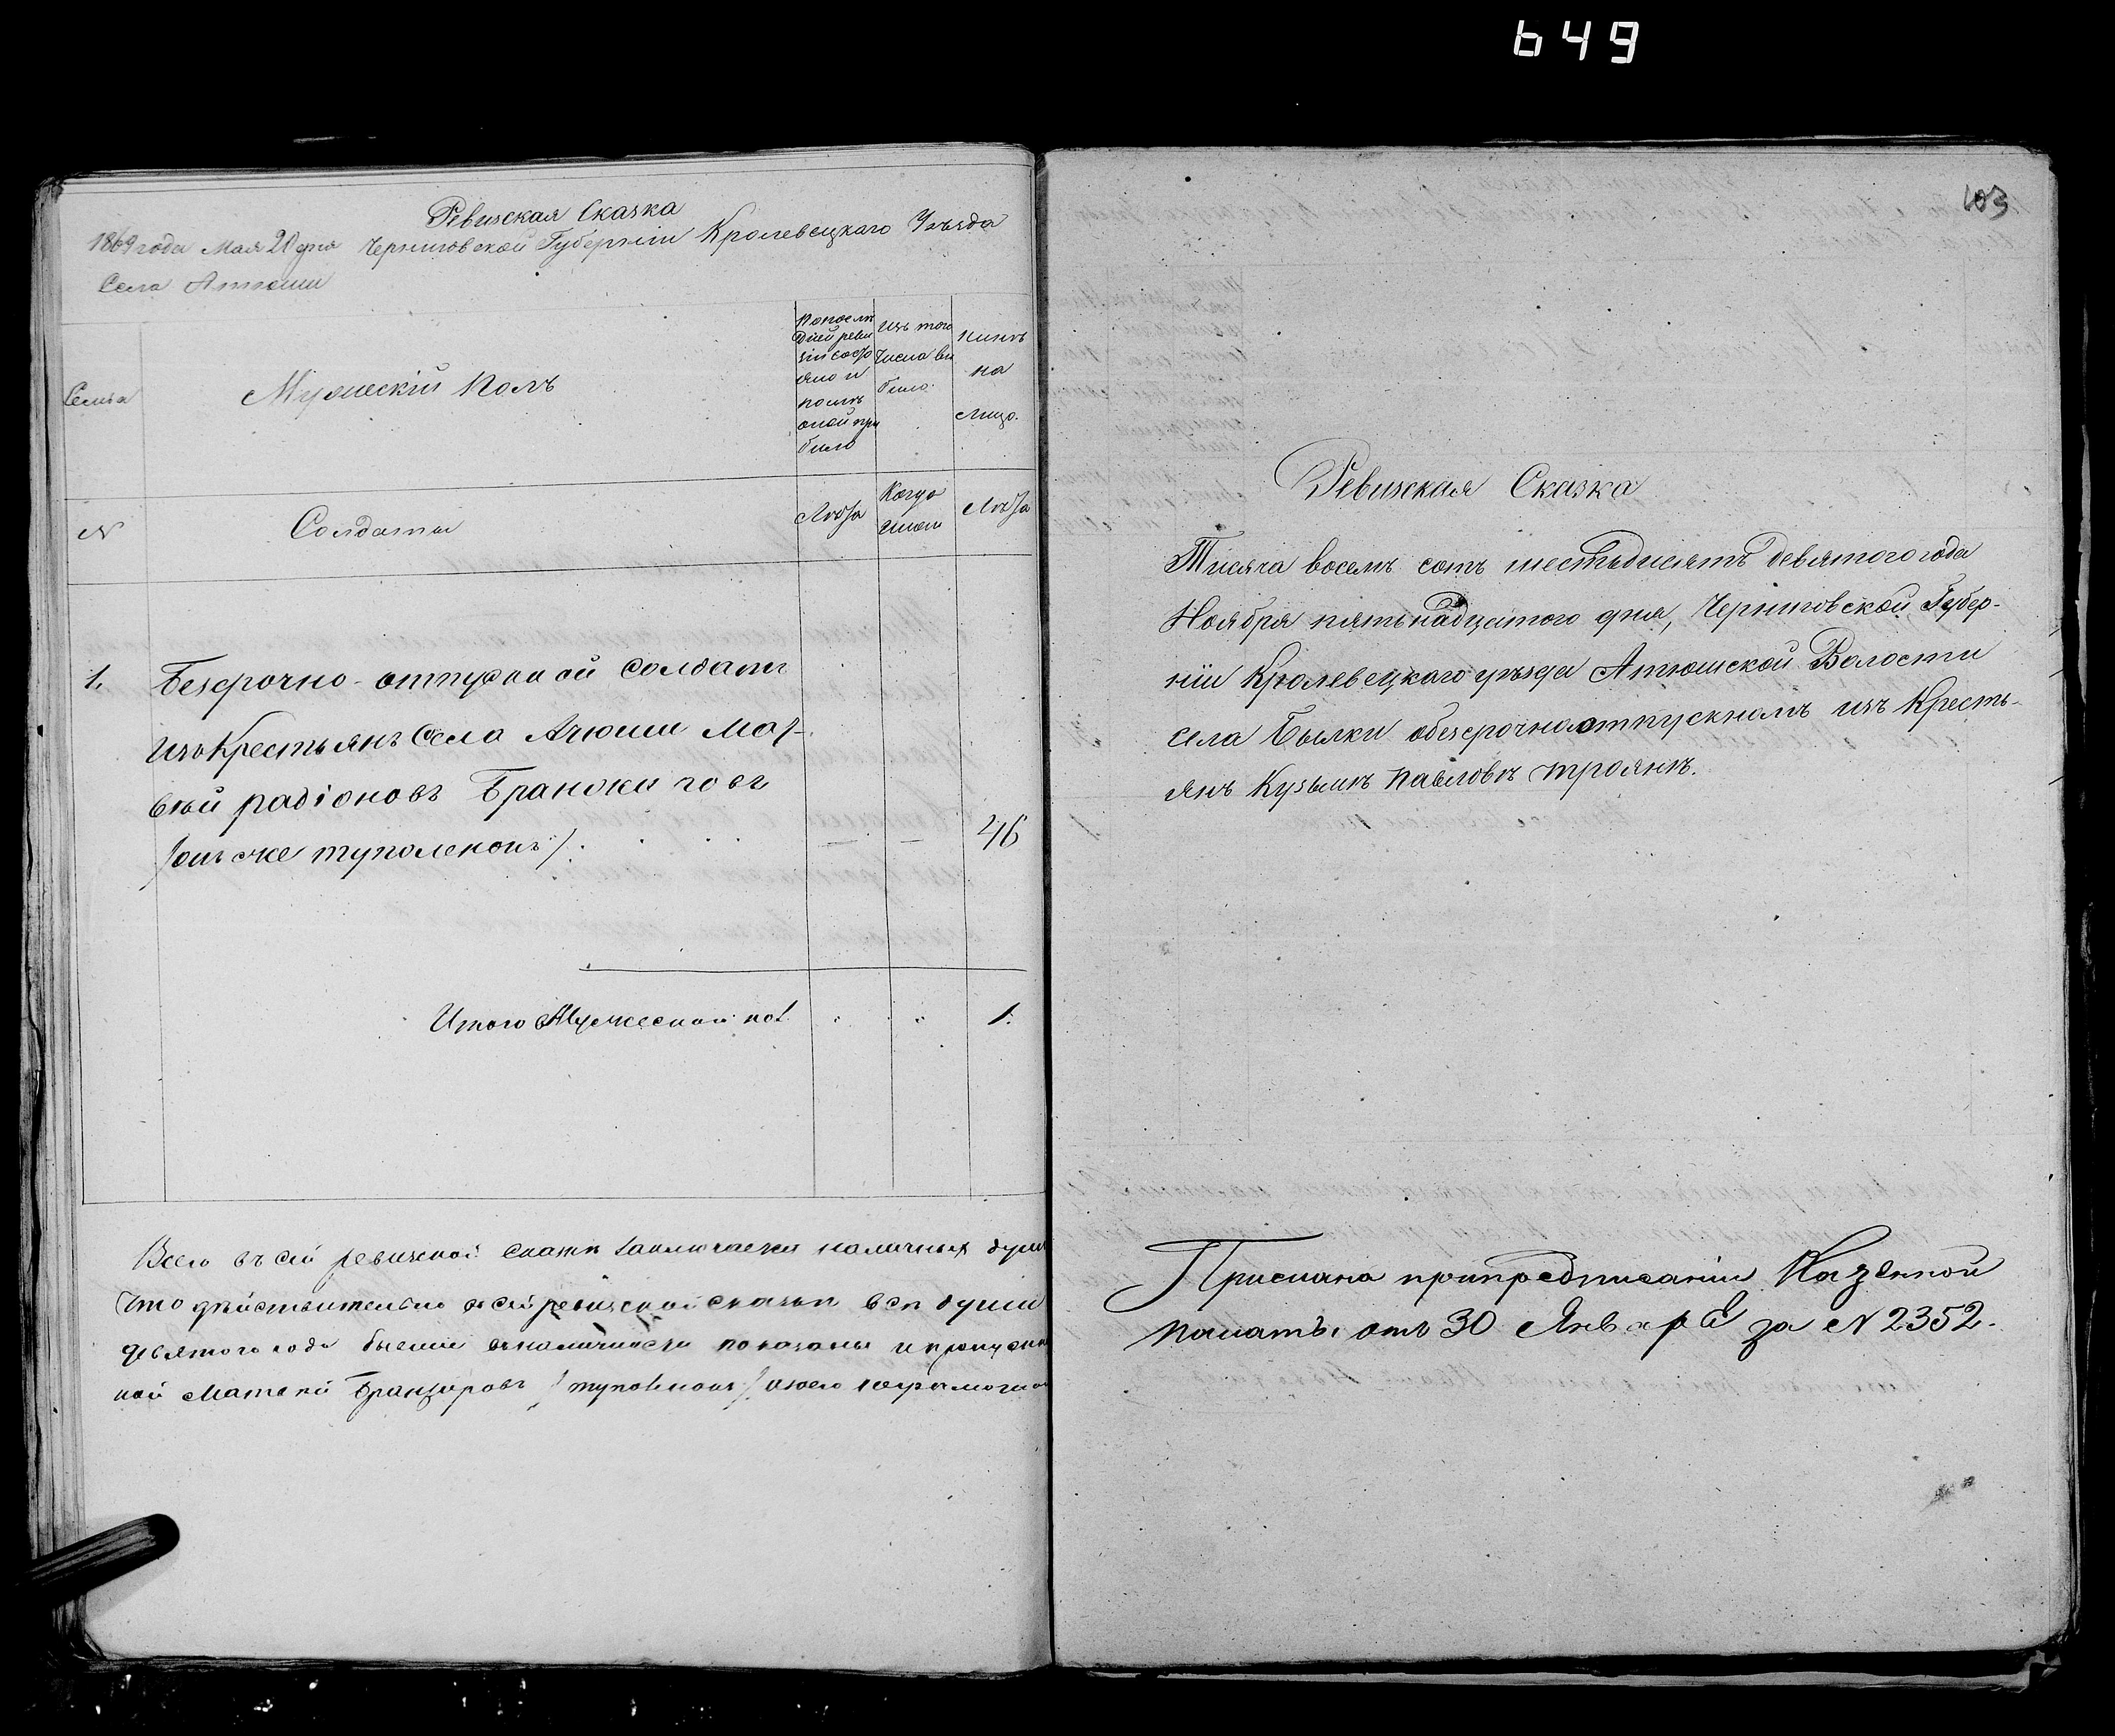 649
Ревизская Сказка
1869 года Мая 20 дня Черниговской Губернiи Кролевецкаго Уѣзда
Села Атюши
Семья
Мужескiй Полъ
По послѣ
дней реви
зiи состо
яло и
послѣ
оной при
было
Изъ того
Числа вы
было.
Нинѣ
на
Лицо.
N
Солдаты
Лѣта
Когда
именно
Лѣта
1.
Безсрочно-отпускной Солдатъ
изъ Крестьянъ Села Атюши Мат-
вѣй радiоновъ
/онъ же туполенокъ/
46
Итого Мужеской пол
1.
Всего въ сей ревизской сказкѣ заключается наличныхъ душъ
Что дѣйствительно въ сей ревизской сказкѣ всѣ души
девятого года бывшiе въ наличности показаны и пропускн
ной Матвей
103
Ревизская Сказка
Тисяча восемъ сотъ шестьдисятъ девятого года
Ноября пятьнадцатого дня, Черниговской Губер-
нiи Кролевецкаго уѣзда Атюшской Волости
села Былки обезсрочноотпускномъ изъ Кресть-
янъ Кузьмѣ Павловѣ Троянѣ.
Прислана припредписанiи Казенной
палаты отъ 30 Января за N 2352.